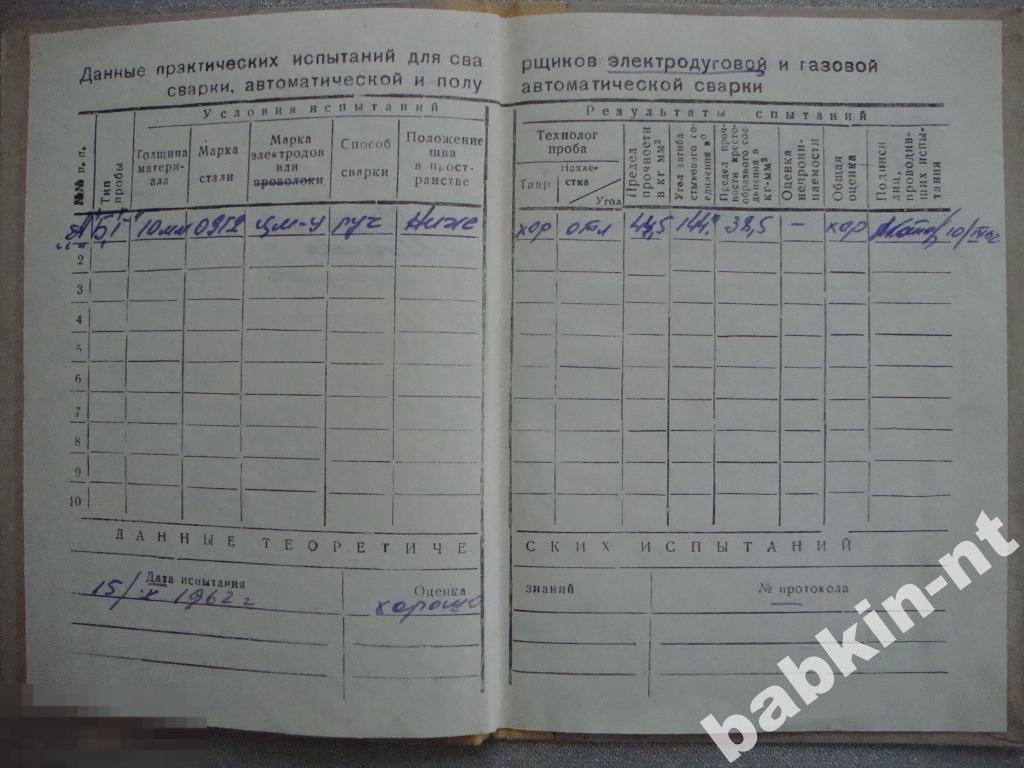 Данные практических испытаний для сва рщиков электродуговой и газовой
сварки, автоматической и полу автоматической сварки
Условия испытаний
Результаты спытаний
№№ п. п.
Тип пробы
Толщина матери- ала
Марка стали
Марка электродов или проволоки
Способ сварки
Положение шва в прост- ранстве
Технолог проба
Тавр
Нахле- стка
Угол
Предел прочности в кг мм²
Угол загиба стыкового со- единения в °
Предел проч- ности кресто- образного сое- динения в кг-мм²
Оценка непрони- цаемости
Общая оценка
Подписи лиц, проводив- ших испы- тания
10мм 09Г2 цм-у руч Ниже хор отл 44,5 144° 32,5 – хор
2
3
4
5
6
7
8
9
10
ДАННЫЕ ТЕОРЕТИЧЕ СКИХ ИСПЫТАНИЙ
Дата испытания
Оценка знаний
№ протокола
15/X 1962 г хорошо
babkin-nt